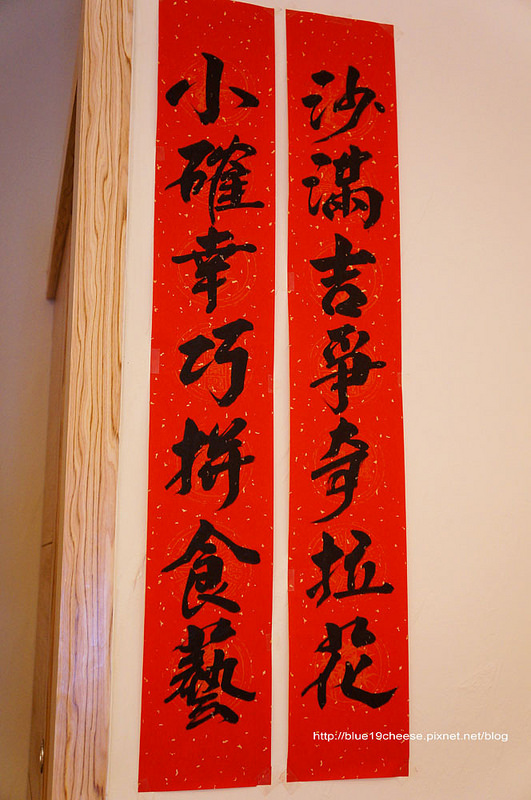 沙滿吉爭奇拉花
小確幸巧拼食藝
http://blue19cheese.pixnet.net/blog